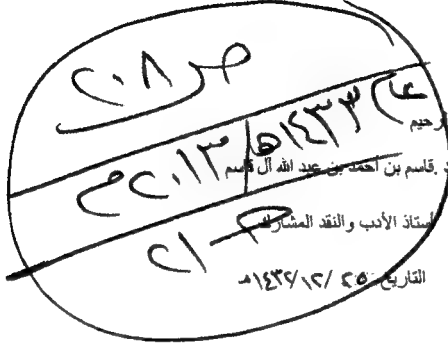 ص ٢٠٨
عام ١٤٣٣هـ/٢٠١٣م
رحيم
د.قاسم بن أحمد بن عبد الله آل قاسم
أستاذ الأدب والنقد المشارك
٢١
التاريخ ٢٥/١٢/١٤٣٢هـ